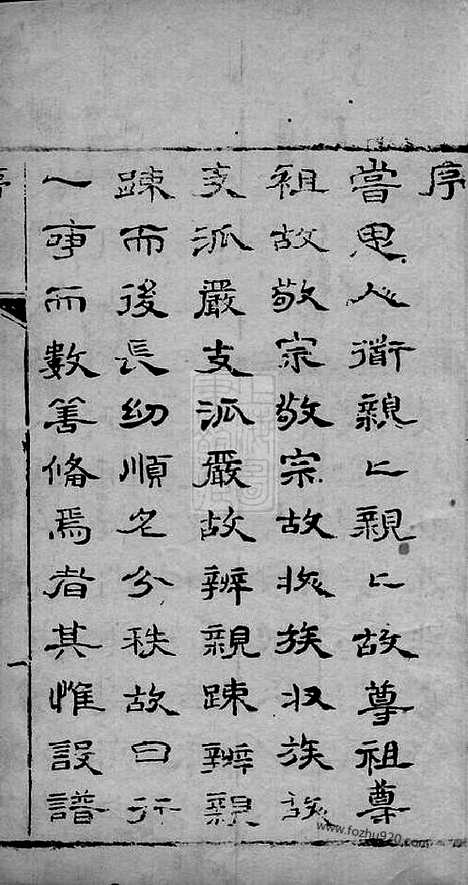 序
嘗思人衜親〻親〻故尊祖尊
祖故敬宗敬宗故收族收族故
支派嚴支派嚴故辨親踈辨親
踈而後長幼順名分秩故曰行
一事而數善俻焉者其惟設譜
序
一
www.fozhu920.com